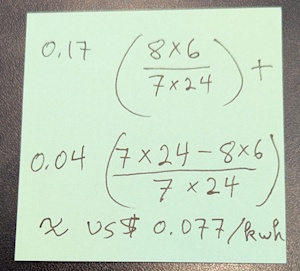 0.17 (8×6 / 7×24) +
0.04 (7×24 - 8×6 / 7×24)
≈ US$ 0.077/kwh